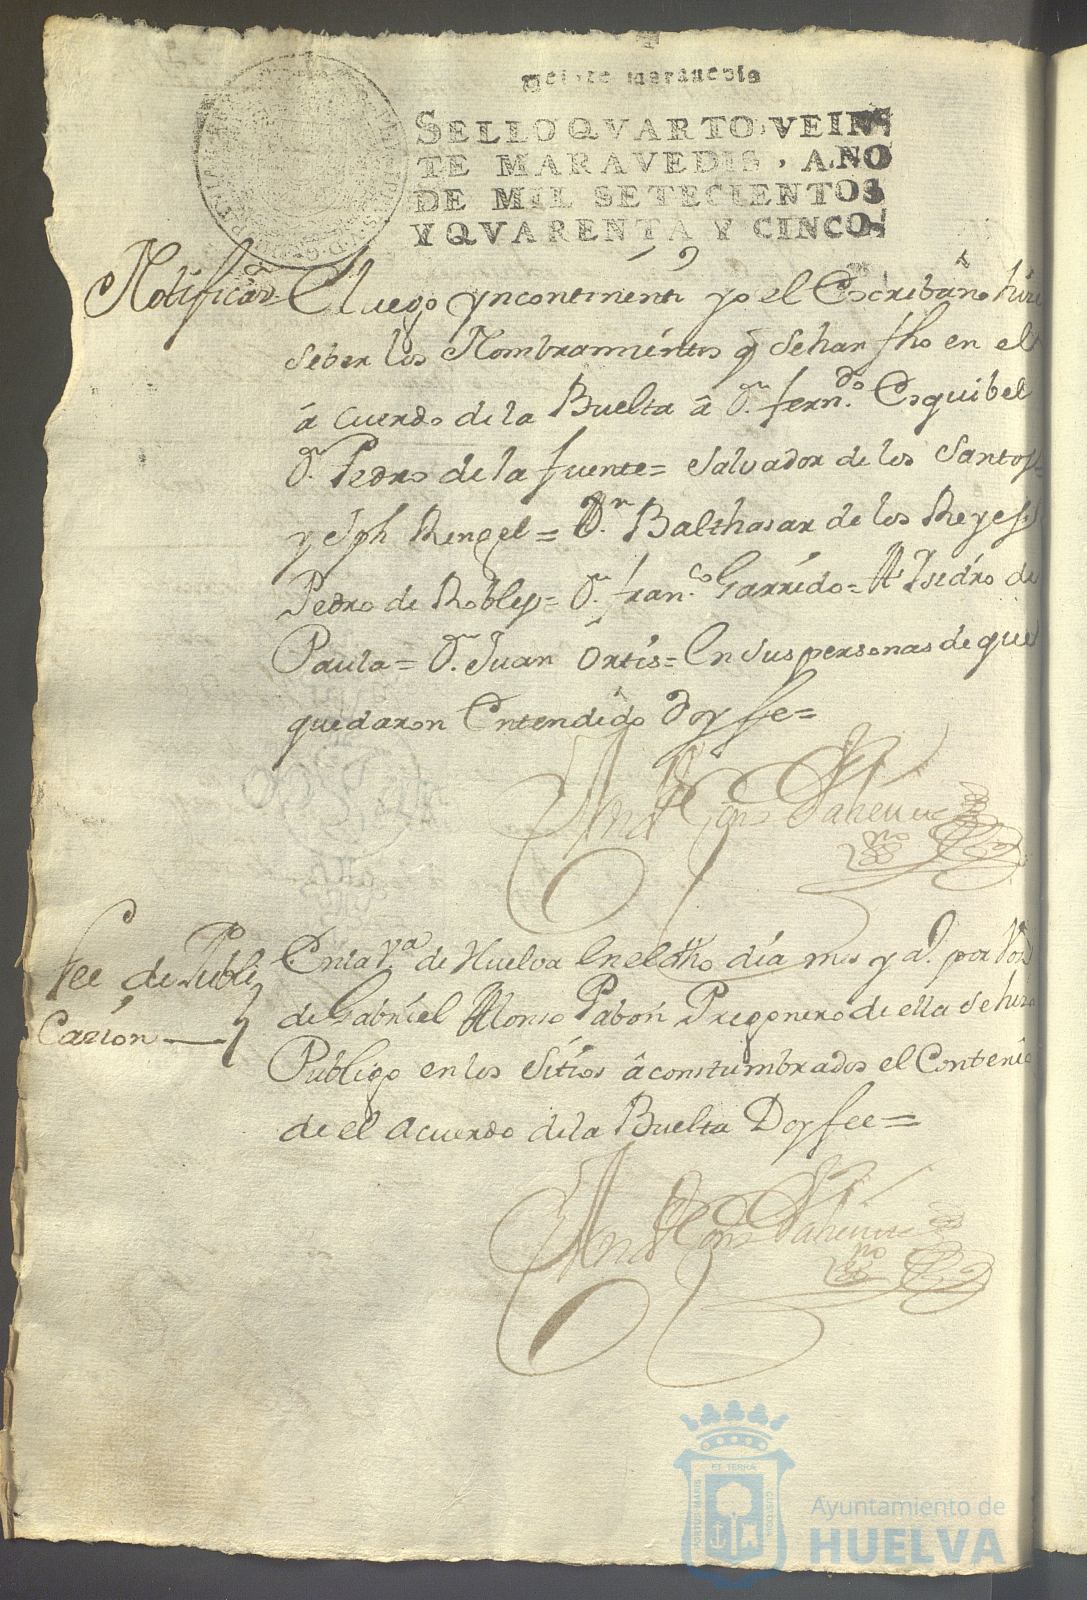 veinte maravedis
SELLO QVARTO, VEIN
TE MARAVEDIS, AÑO
DE MIL SETECIENTOS
Y QVARENTA Y CINCO.
Notificaon E luego yncontinenti yo el Escribano hize
seber los Nombramientos q se han fho en el
â cuerdo de la Buelta â Dn. Ferndo. Esquibel
Dn. Pedro de la fuente= Salvador de los Santos=
y Jph Rengel= Dn. Balthasar de los Reyes=
Pedro de Robles= Dn. franco. Garrido= Isidro de
Paula= Dn. Juan Ortis= En sus personas de que
quedaron Entendido Doy fe=
Fee de Publi
Cazion
En la Va. de Huelva En el dho dia mes y a. por Voz
de Gabriel Alonso Pabón Pregonero de ella se hizo
Publigo en los sitios âconstumbrados el Conteni
de el Acuerdo de la Buelta Doy fee=
ET TERRÆ
PORTUS MARIS
CUSTODIA
Ayuntamiento de
HUELVA